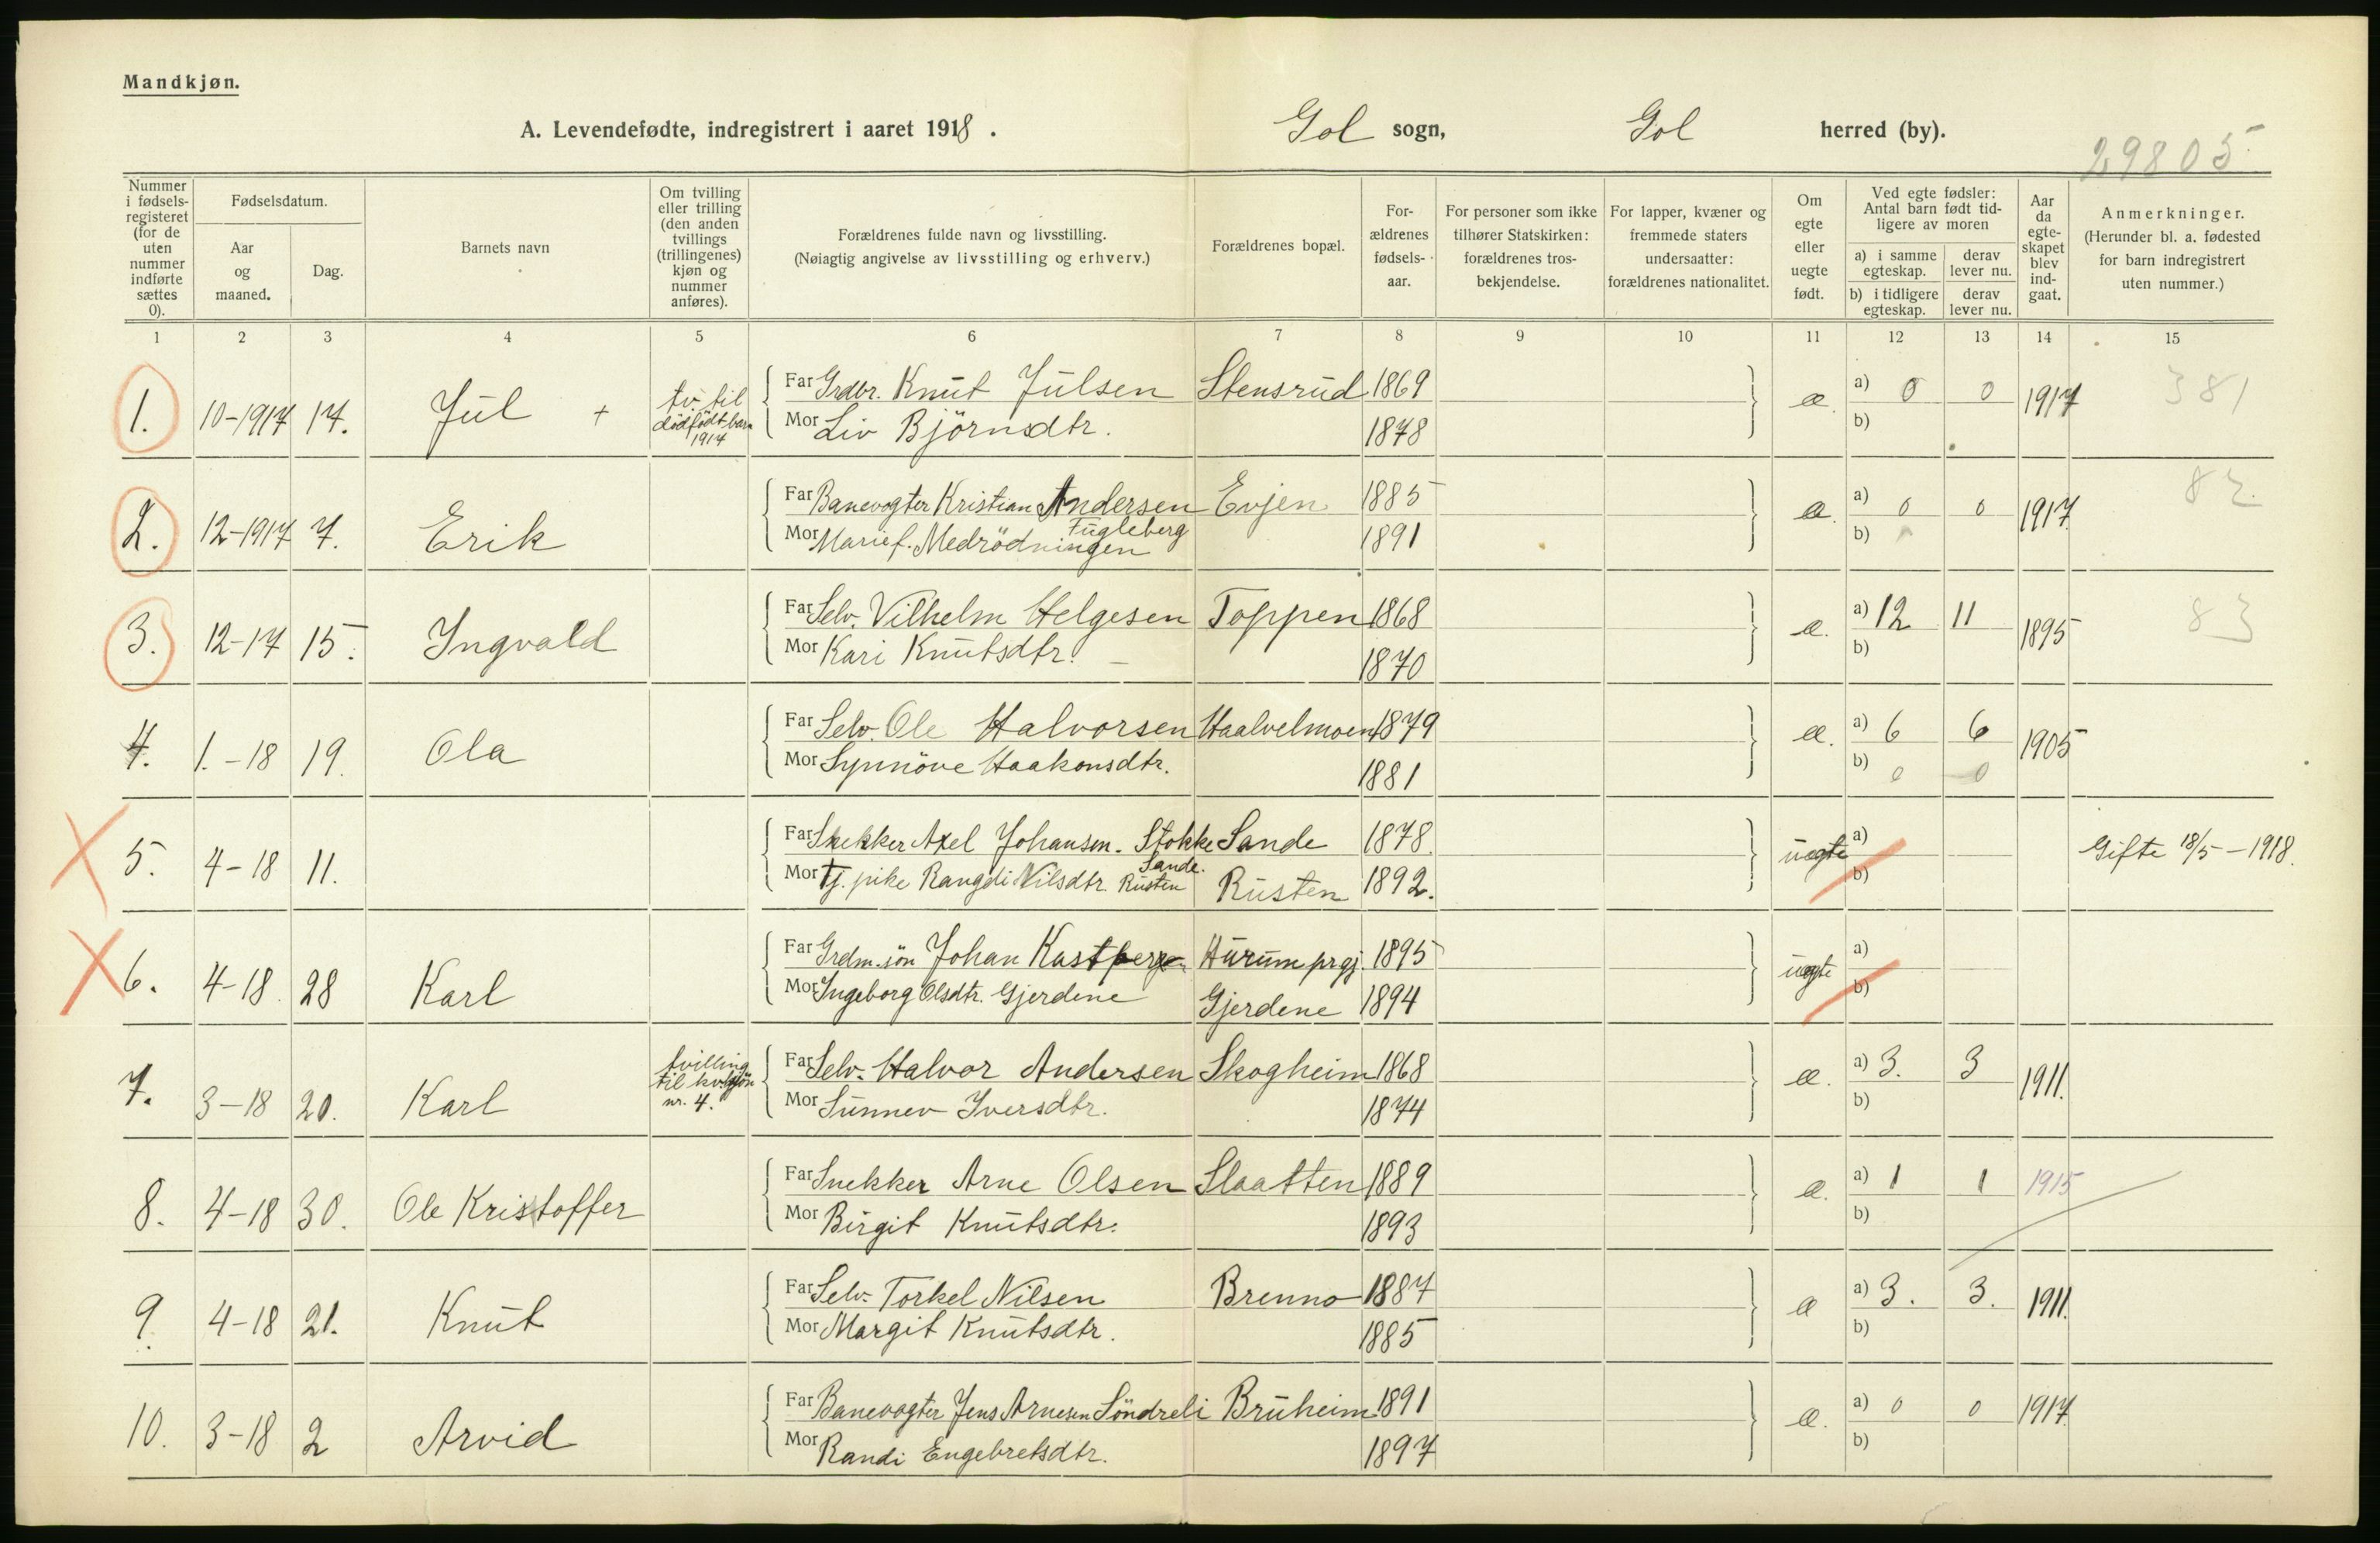 Mandkjøn.
A. Levendefødte, indregistrert i aaret 1918. Gol sogn, Gol herred (by).
29805
Nummer i fødsels-registeret (for de uten nummer indførte sættes 0).
Fødselsdatum.
Aar og maaned.
Dag.
Barnets navn
Om tvilling eller trilling (den anden tvillings (trillingenes) kjøn og nummer anføres).
Forældrenes fulde navn og livsstilling.
(Nøiagtig angivelse av livsstilling og erhverv.)
Forældrenes bopæl.
For-ældrenes fødsels-aar.
For personer som ikke tilhører Statskirken: forældrenes tros-bekjendelse.
For lapper, kvæner og fremmede staters undersaatter: forældrenes nationalitet.
Om egte eller uegte født.
Ved egte fødsler: Antal barn født tid-ligere av moren
a) i samme egteskap. derav lever nu.
b) i tidligere egteskap. derav lever nu.
Aar da egte-skapet blev ind-gaat.
Anmerkninger.
(Herunder bl. a. fødested for barn indregistrert uten nummer.)
1 2 3 4 5 6 7 8 9 10 11 12 13 14 15
1. 10-1917 17. Jul + tv. til dödfödt barn 1917 Far Grdbr. Knut Julsen Stensrud 1869 æ. a) 0 0 1917 381
Mor Liv Björnsdtr. 1878 b)
2. 12-1917 7. Erik Far Banevogter Kristian Andersen Evjen 1885 æ. a) 0 0 1917 82.
Fugleberg
Mor Marie f. Medrödningen 1891 b)
3. 12-17 15. Ingvald Far Selv. Vilhelm Helgesen Toppen 1868 æ. a) 12 11 1895 83
Mor Kari Knutsdtr. 1870 b)
4. 1.-18 19. Ola Far Selv. Ole Halvorsen Haalvelmoen 1879 æ. a) 6 6 1905
Mor Synnöve Haakonsdtr. 1881 b) 0 0
5. 4-18 11. Far Snekker Axel Johansen. Stokke Sande 1878. uegte a) Gifte 18/5-1918.
Sande.
Mor Tj. pike Rangdi Nilsdtr. Rusten Rusten 1892. b)
6. 4-18. 28 Karl Far Grdm.sön Johan Hurum prgj. 1895 uegte a)
Mor Ingeborg Olsdtr. Gjerdene Gjerdene 1894 b)
7. 3-18 20. Karl tvilling til kvkjön nr. 4. Far Selv. Halvor Andersen Skogheim 1868 æ. a) 3. 3 1911.
Mor Sunnev Iversdtr. 1874 b)
8. 4-18 30. Ole Kristoffer Far Snekker Arne Olsen Slaatten 1889 æ. a) 1 1 1915
Mor Birgit Knutsdtr. 1893 b)
9. 4-18 21. Knut Far Selv. Torkel Nilsen Brenno 1887 æ a) 3. 3. 1911.
Mor Margit Knutsdtr. 1885 b)
10. 3-18 2 Arvid Far Banevogter Jens Arnesen Söndreli Bruheim 1891 æ. a) 0 0 1917.
Mor Randi Engebretsdtr. 1897 b)